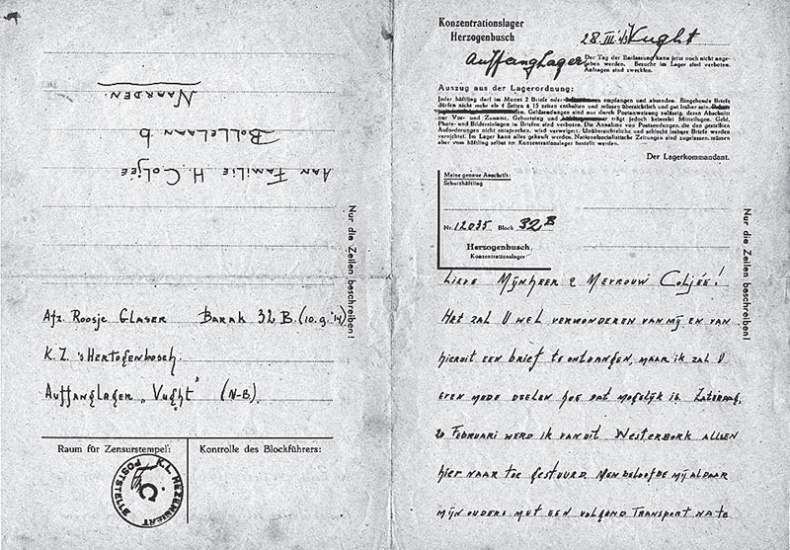 Aan Familie H. Coljée
Bollelaan 6
Naarden.
Nur die Zeilen beschreiben!
Afz. Roosje Glaser Barak 32 B. (10.9.'14)
K.Z. 's Hertogenbosch.
Auffanglager „Vught" (N-B).
Raum für Zensurstempel:
Kontrolle des Blockführers:
POSTSTELLE
Konzentrationslager
Herzogenbusch
28. III. 43 Vught
Auffanglager
Der Tag der Entlassung kann jetzt noch nicht ange-
geben werden. Besuche im Lager sind verboten.
Anfragen sind zwecklos.
Auszug aus der Lagerordnung:
Jeder Häftling darf im Monat 2 Briefe oder empfangen und absenden. Eingehende Briefe
dürfen nicht mehr als 4 Seiten à 15 Zeilen enthalten und müssen übersichtlich und gut lesbar sein.
Geldsendungen sind nur durch Postanweisung zulässig, deren Abschnitt
nur Vor- und Zuname, Geburtstag und trägt, jedoch keinerlei Mitteilungen. Geld,
Photo- und Bildereinlagen in Briefen sind verboten. Die Annahme von Postsendungen, die den gestellten
Anforderungen nicht entsprechen, wird verweigert. Unübersichtliche und schlecht lesbare Briefe werden
vernichtet. Im Lager kann alles gekauft werden. Nationalsozialistische Zeitungen sind zugelassen, müssen
aber vom Häftling selbst im Konzentrationslager bestellt werden.
Der Lagerkommandant.
Meine genaue Anschrift:
Schutzhäftling
Nr. 12035 Block 32 B
Herzogenbusch
Konzentrationslager
Nur die Zeilen beschreiben!
Lieve Mijnheer & Mevrouw Coljée!
Het zal U wel verwonderen van mij en van
hieruit een brief te ontvangen, maar ik zal U
even mede delen hoe dat mogelijk is. Zaterdag,
20 Februari werd ik vanuit Westerbork alleen
hier naar toe gestuurd. Men beloofde mij aldaar
mijn ouders met een volgend transport na te